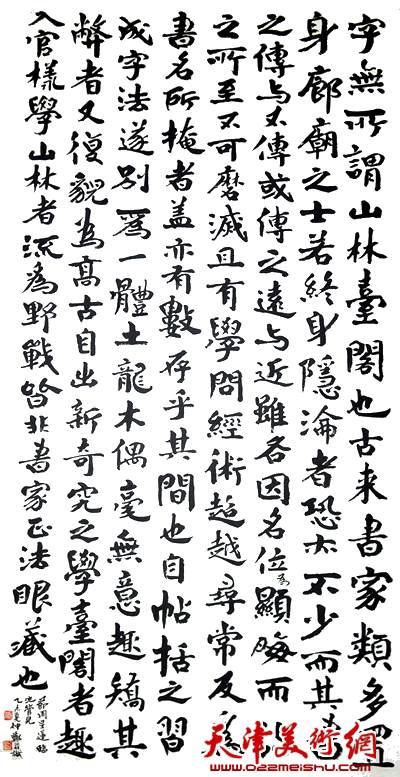 字無所謂山林臺閣也古来書家類多置
身廊廟之士若終身隱淪者恐亦不少而其書
之傳与不傳或傳之遠与近雖各因名位為顯晦而功
之所至不可磨滅且有學問經術超越尋常反為
書名所掩者盖亦有數存乎其間也自帖括之習
成字法遂别為一體土龍木偶毫無意趣矯其
弊者又復貌為髙古自出新奇究之學臺閣者趣
入官樣學山林者流為野戰皆非書家正法眼藏也
節周星蓮臨
池管見
天津美術網
www.022meishu.com